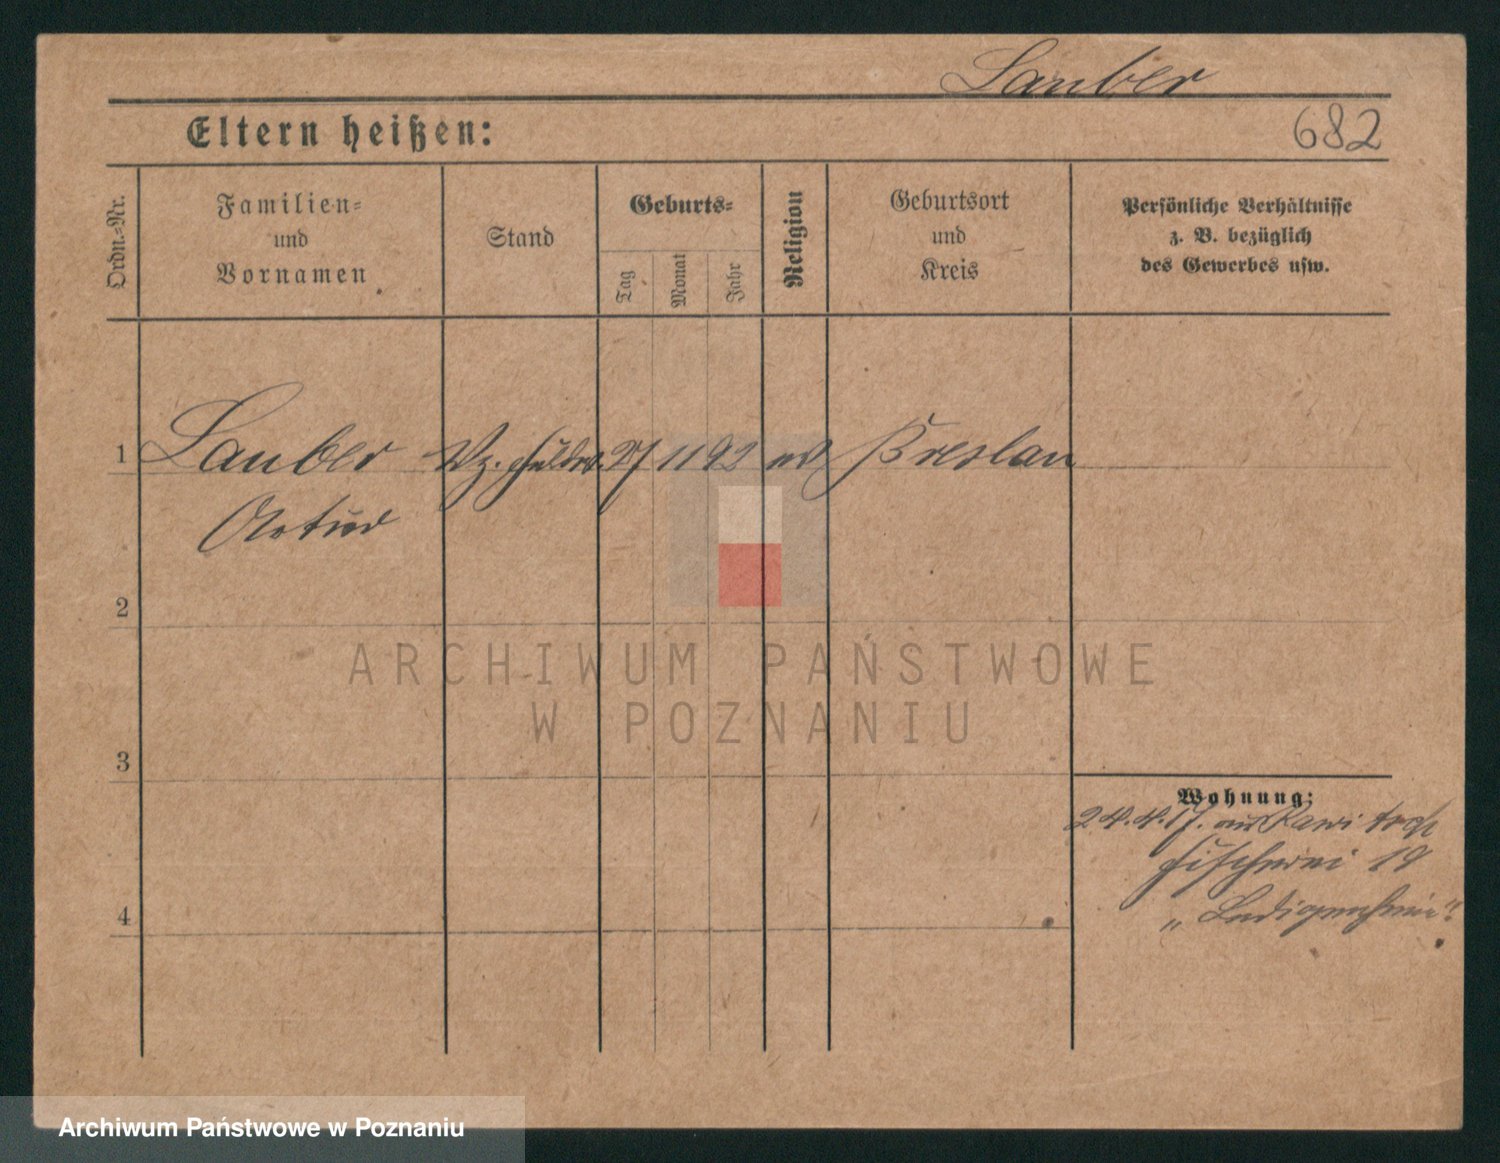 Lauber
Eltern heißen:
682
Ordn.-Nr.
Familien-
und
Vornamen
Stand
Geburts-
Tag
Monat
Jahr
Religion
Geburtsort
und
Kreis
Persönliche Verhältnisse
z. B. bezüglich
des Gewerbes usw.
1 Lauber 27 11 92 ev Breslau
Artur
2
3
4
Wohnung:
24.4.17. aus Rawitsch
Fischerei 19
"Ledigenheim".
ARCHIWUM PAŃSTWOWE
W POZNANIU
Archiwum Państwowe w Poznaniu